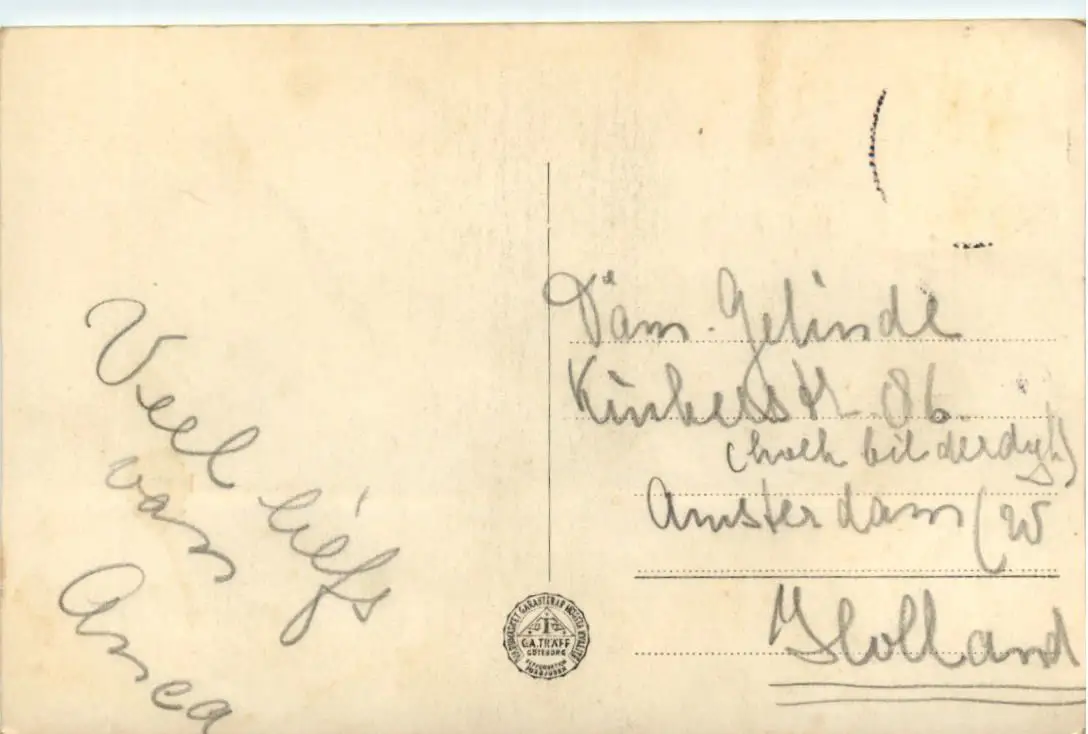 Veel liefs
van
Anca
Dam. Gelinde
Kinkerstr. 86.
(hoek bilderdijk)
Amsterdam (W
Holland
C.A. TRÄFF
GÖTEBORG